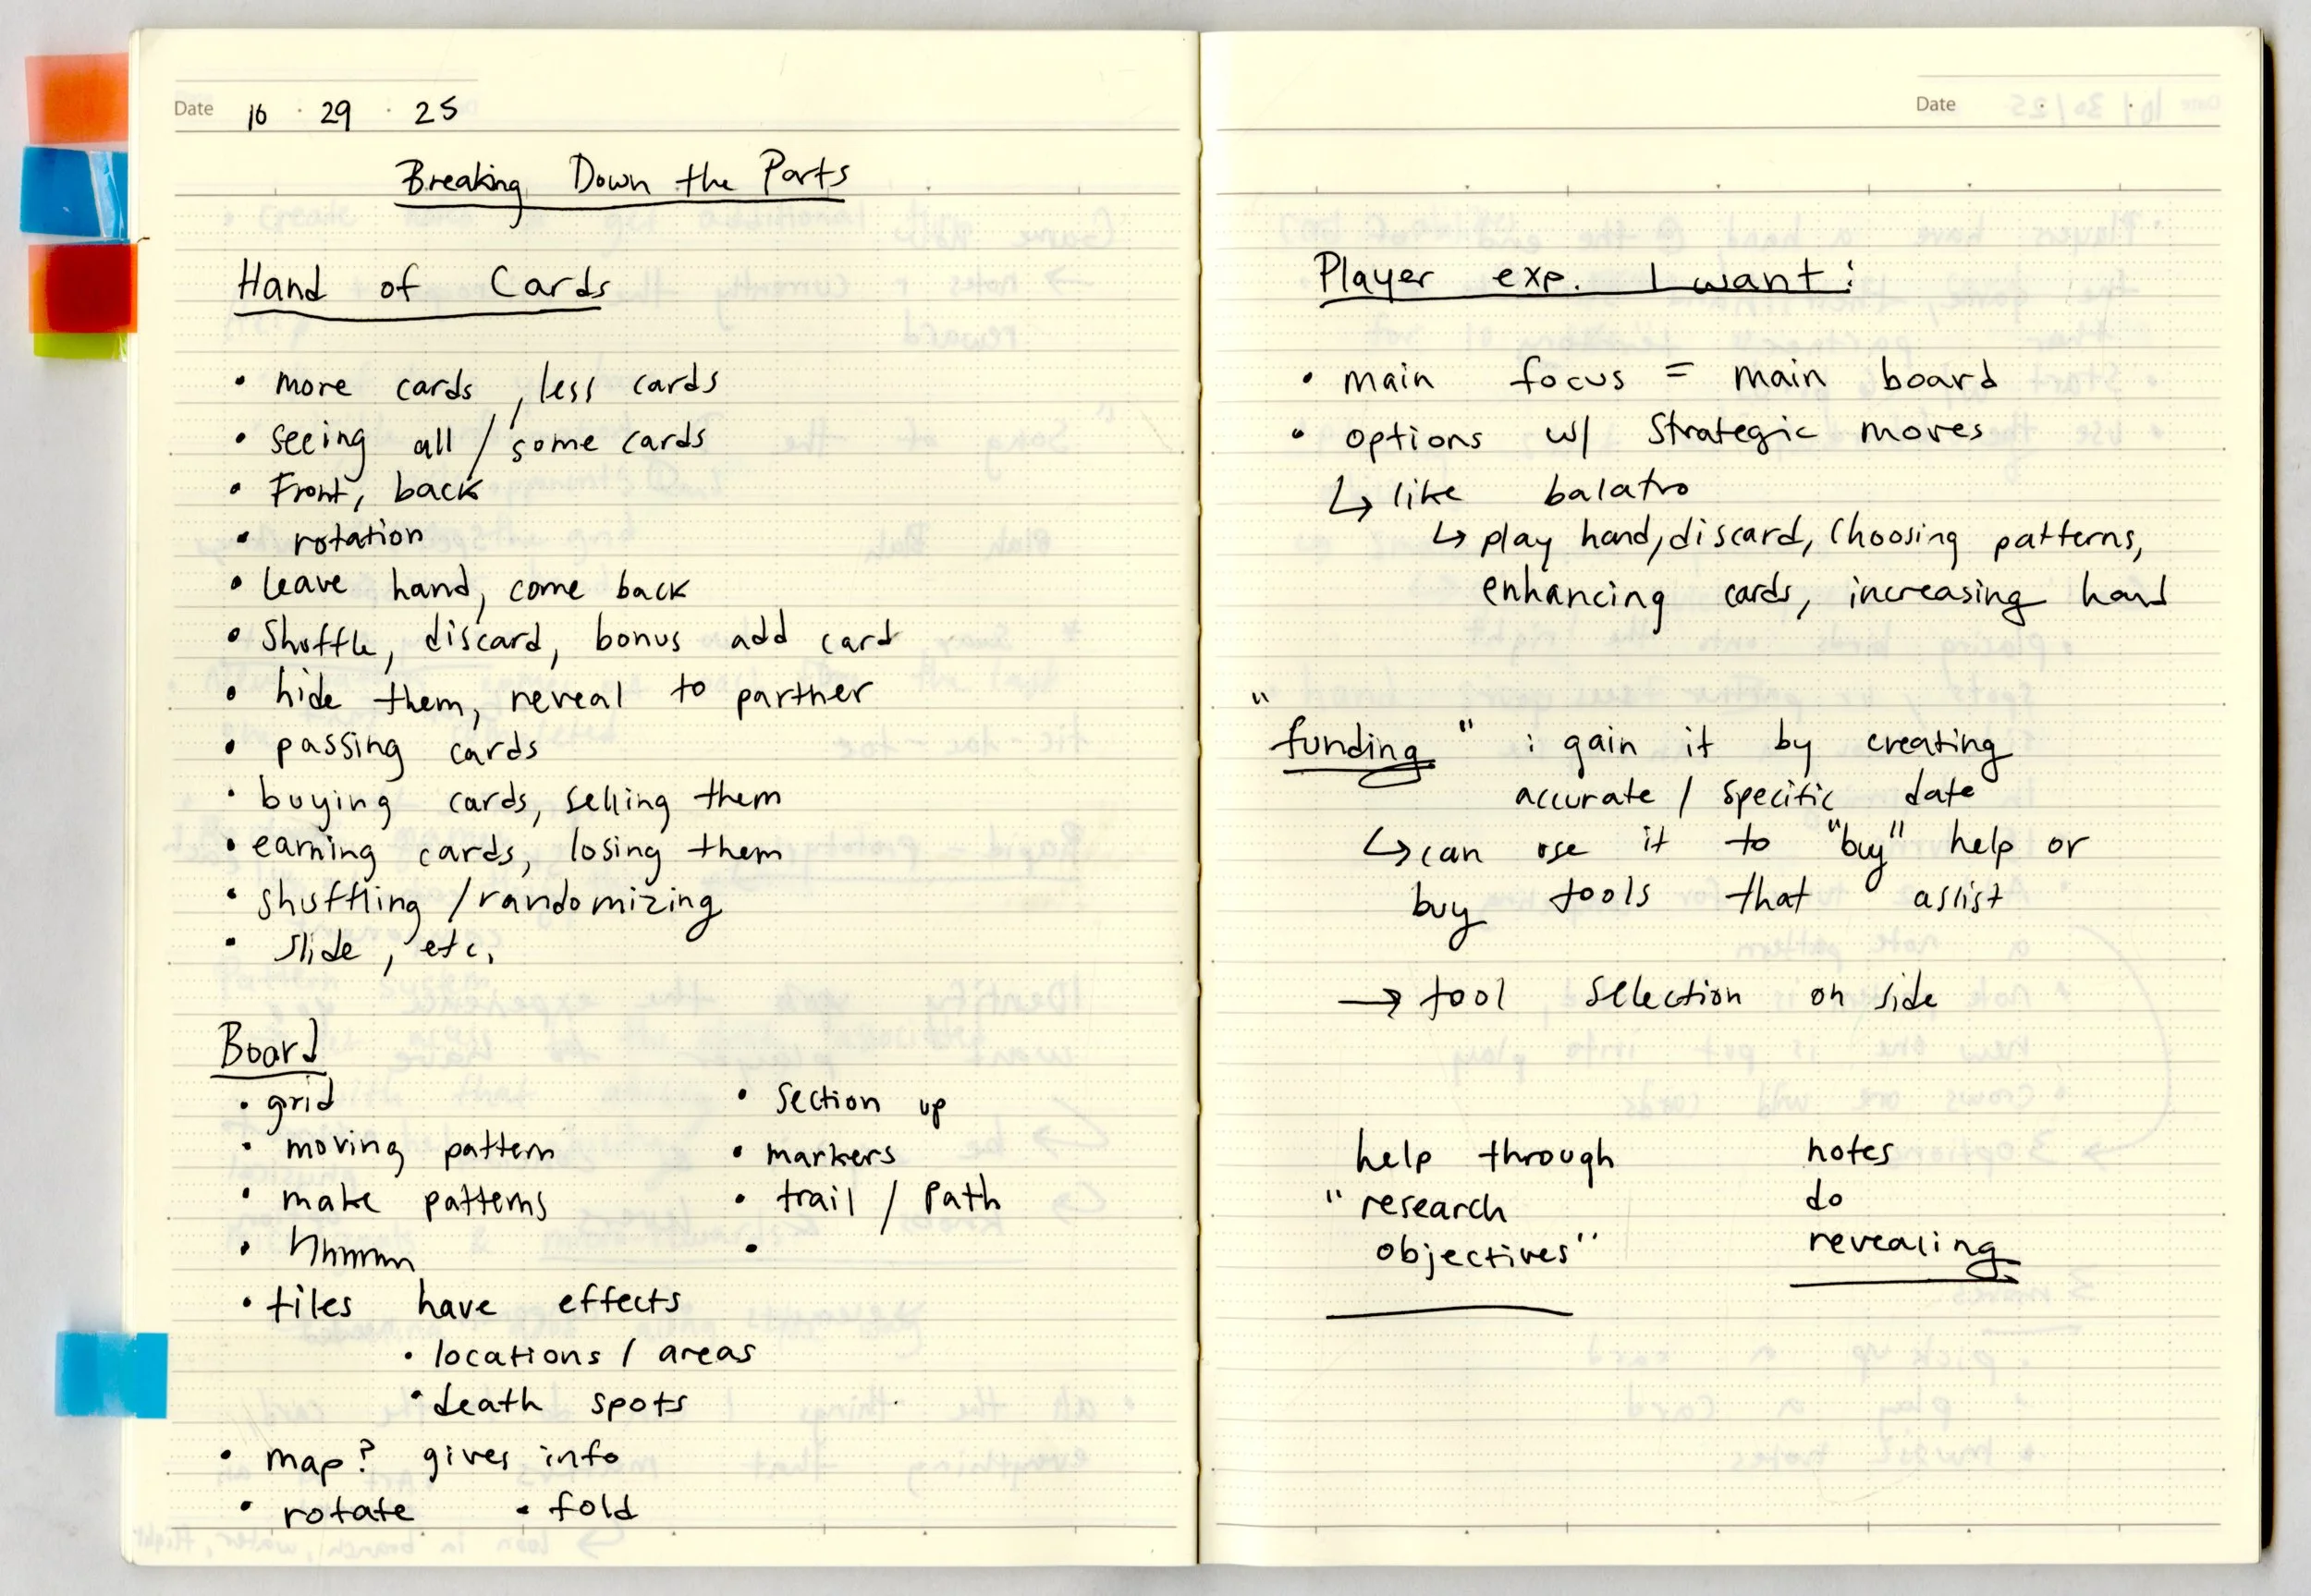 Date 10 · 29 · 25
Breaking Down the Parts
Hand of Cards
• more cards, less cards
• seeing all / some cards
• Front, back
• rotation
• leave hand, come back
• Shuffle, discard, bonus add card
• hide them, reveal to partner
• passing cards
• buying cards, selling them
• earning cards, losing them
• shuffling / randomizing
• slide, etc.
Board
• grid
• moving pattern
• make patterns
• hhmmm
• tiles have effects
• locations / areas
• death spots
• map? gives info
• rotate • fold
• section up
• markers
• trail / path
•
Date
Player exp. I want:
• main focus = main board
• options w/ strategic moves
↳ like balatro
↳ play hand, discard, choosing patterns,
enhancing cards, increasing hand
"funding" : gain it by creating
accurate / specific date
↳ can use it to "buy" help or
buy tools that assist
→ tool selection on side
help through
"research
objectives"
notes
do
revealing